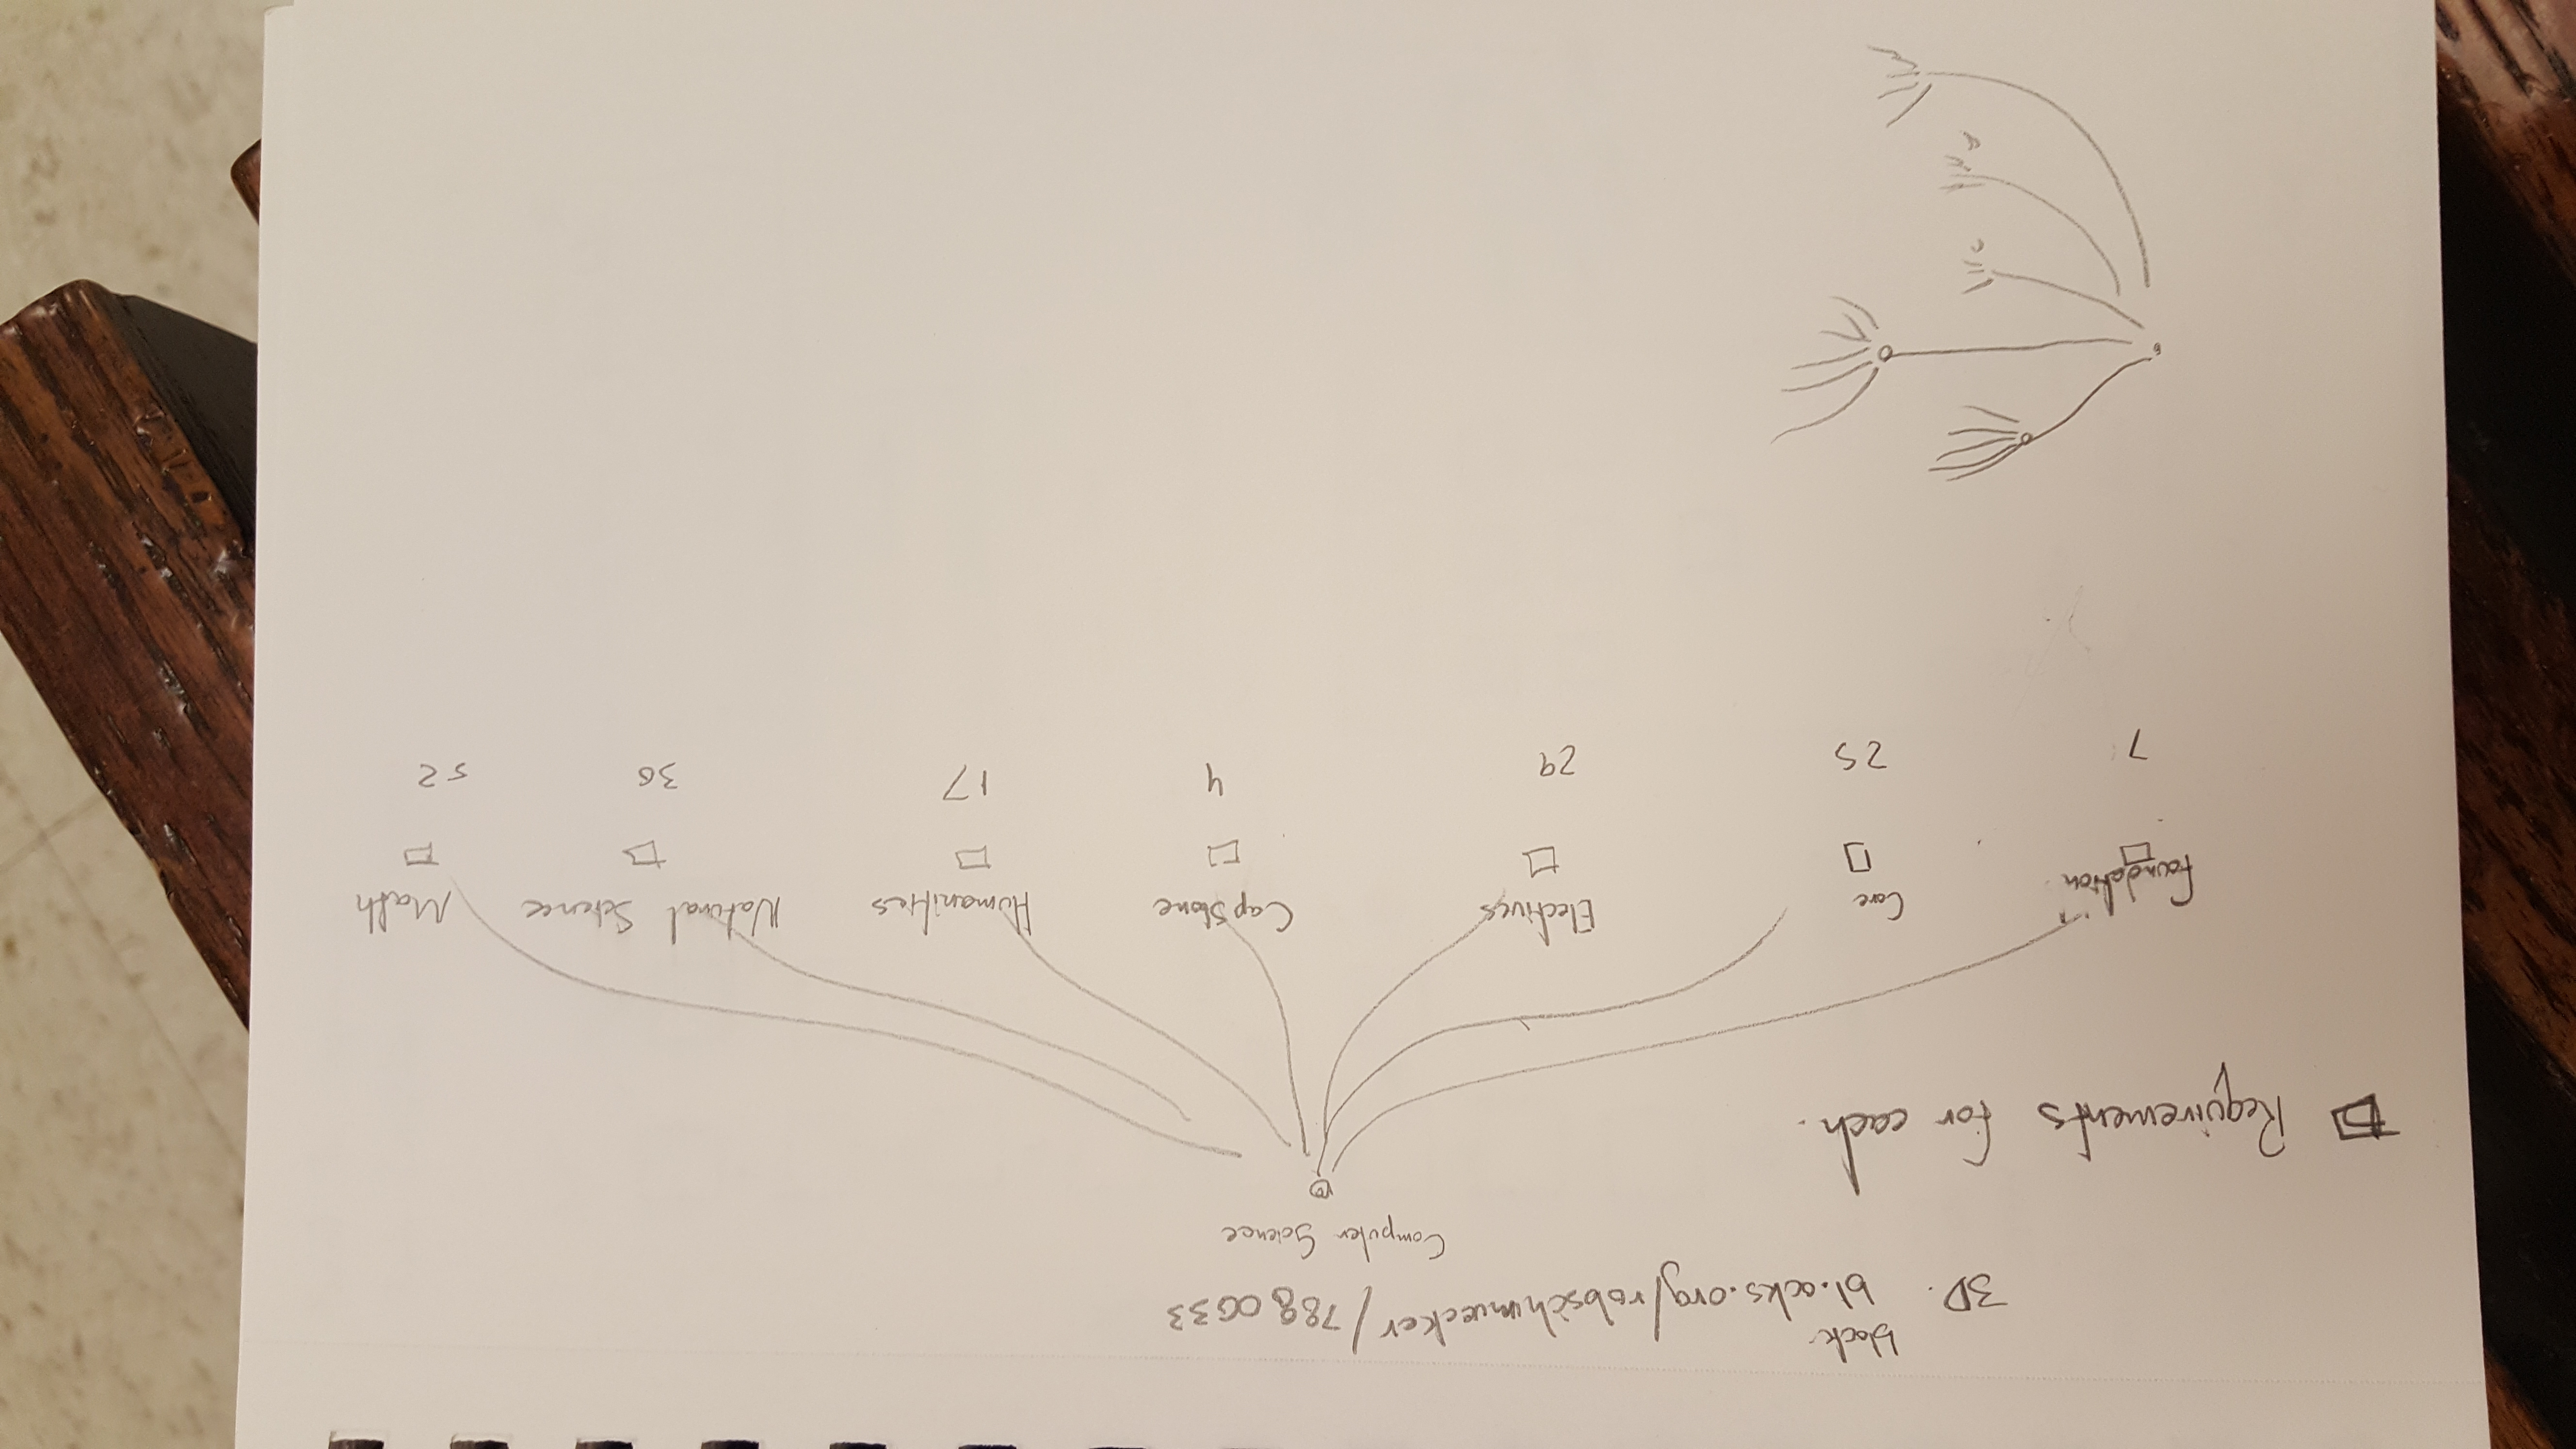 block
3D. bl.ocks.org/robschmuecker/7880033
Computer Science
Requirements for each.
Foundation Core Electives CapStone Humanities Natural Science Math
7 25 29 4 17 36 52